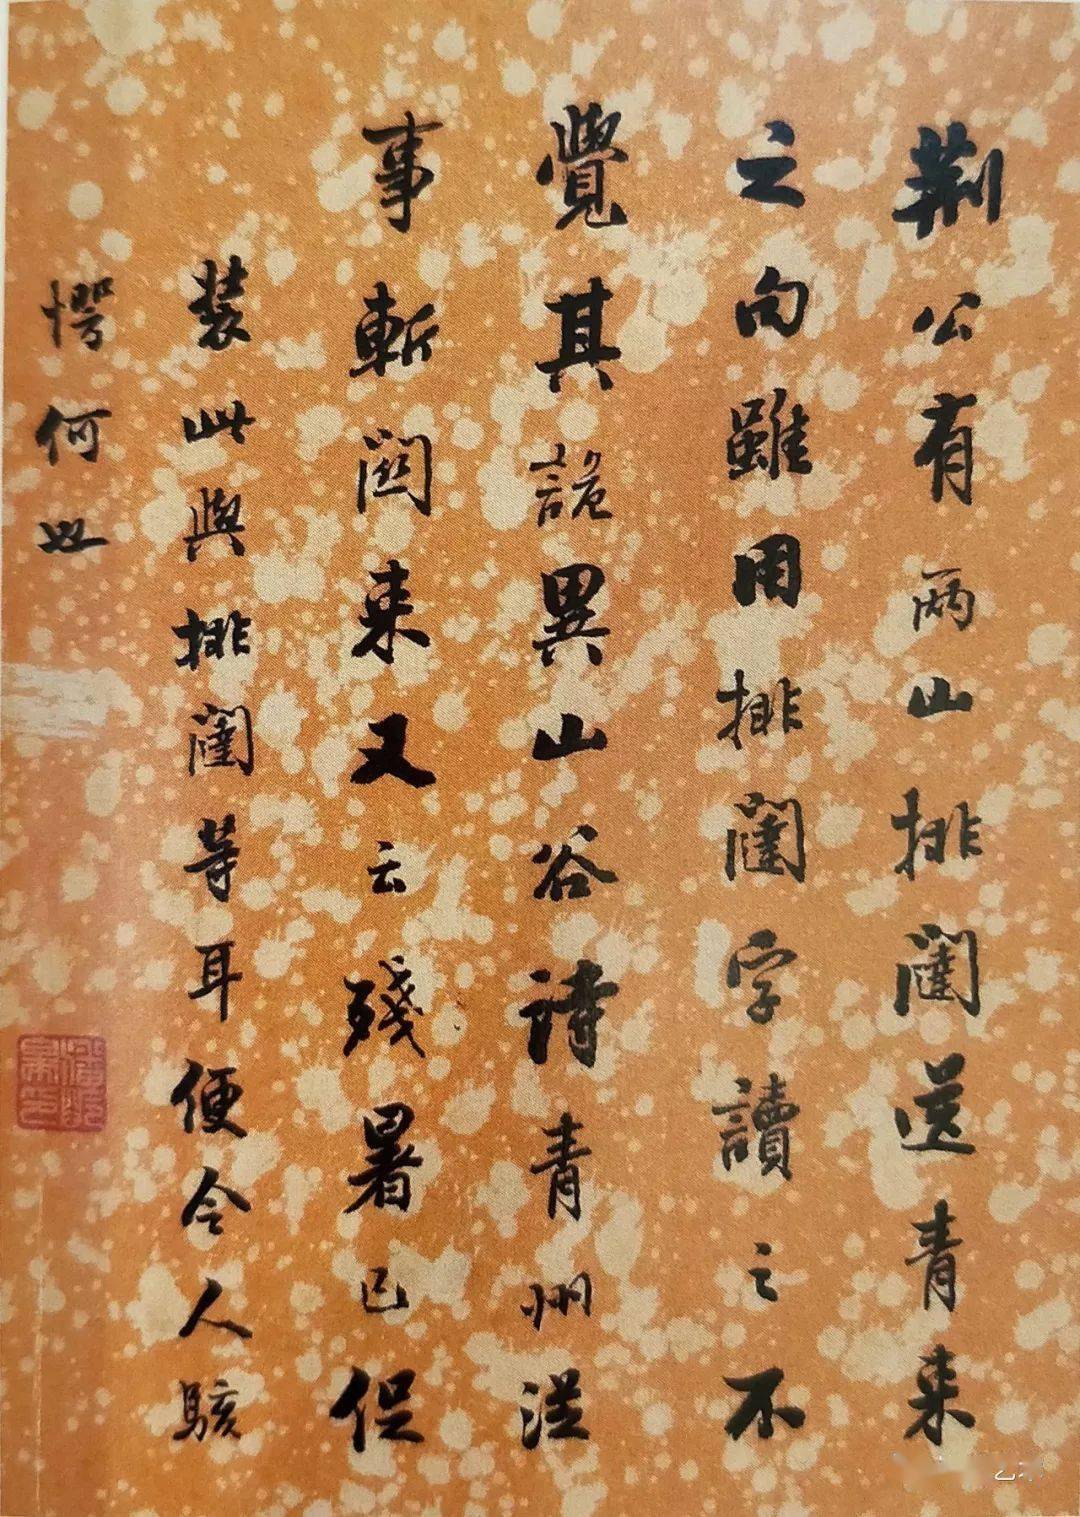 荆公有两山排闼送青来
之句雖用排闥字讀之不
覺其詭異山谷詩青州從
事斬關來又云殘暑已促
裝此與排闥等耳便令人駭
愕何也